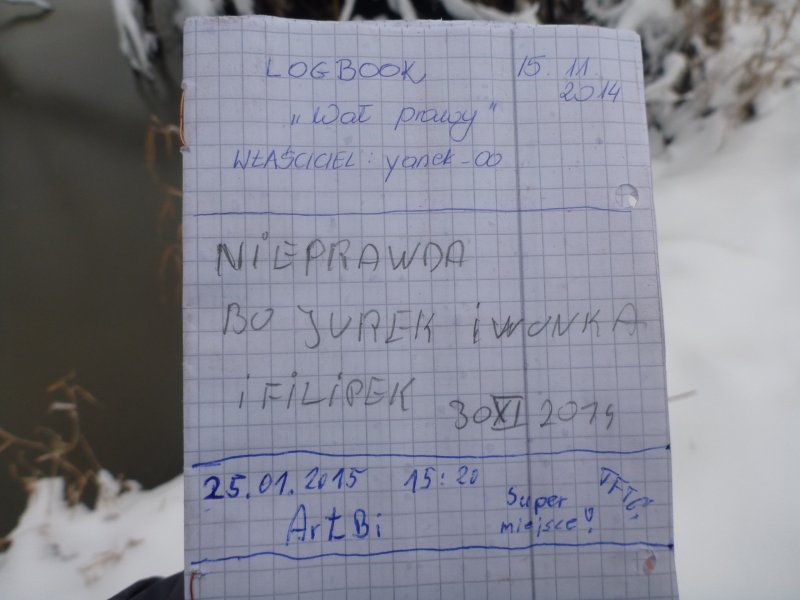 LOGBOOK 15. 11. 2014
"Wał prawy"
WŁAŚCICIEL: yanek-00
NIEPRAWDA
BO JUREK IWONKA
i FiLiPEK 30 XI 2014
25.01.2015 15:20
ArtBi
Super miejsce!
TFTC!